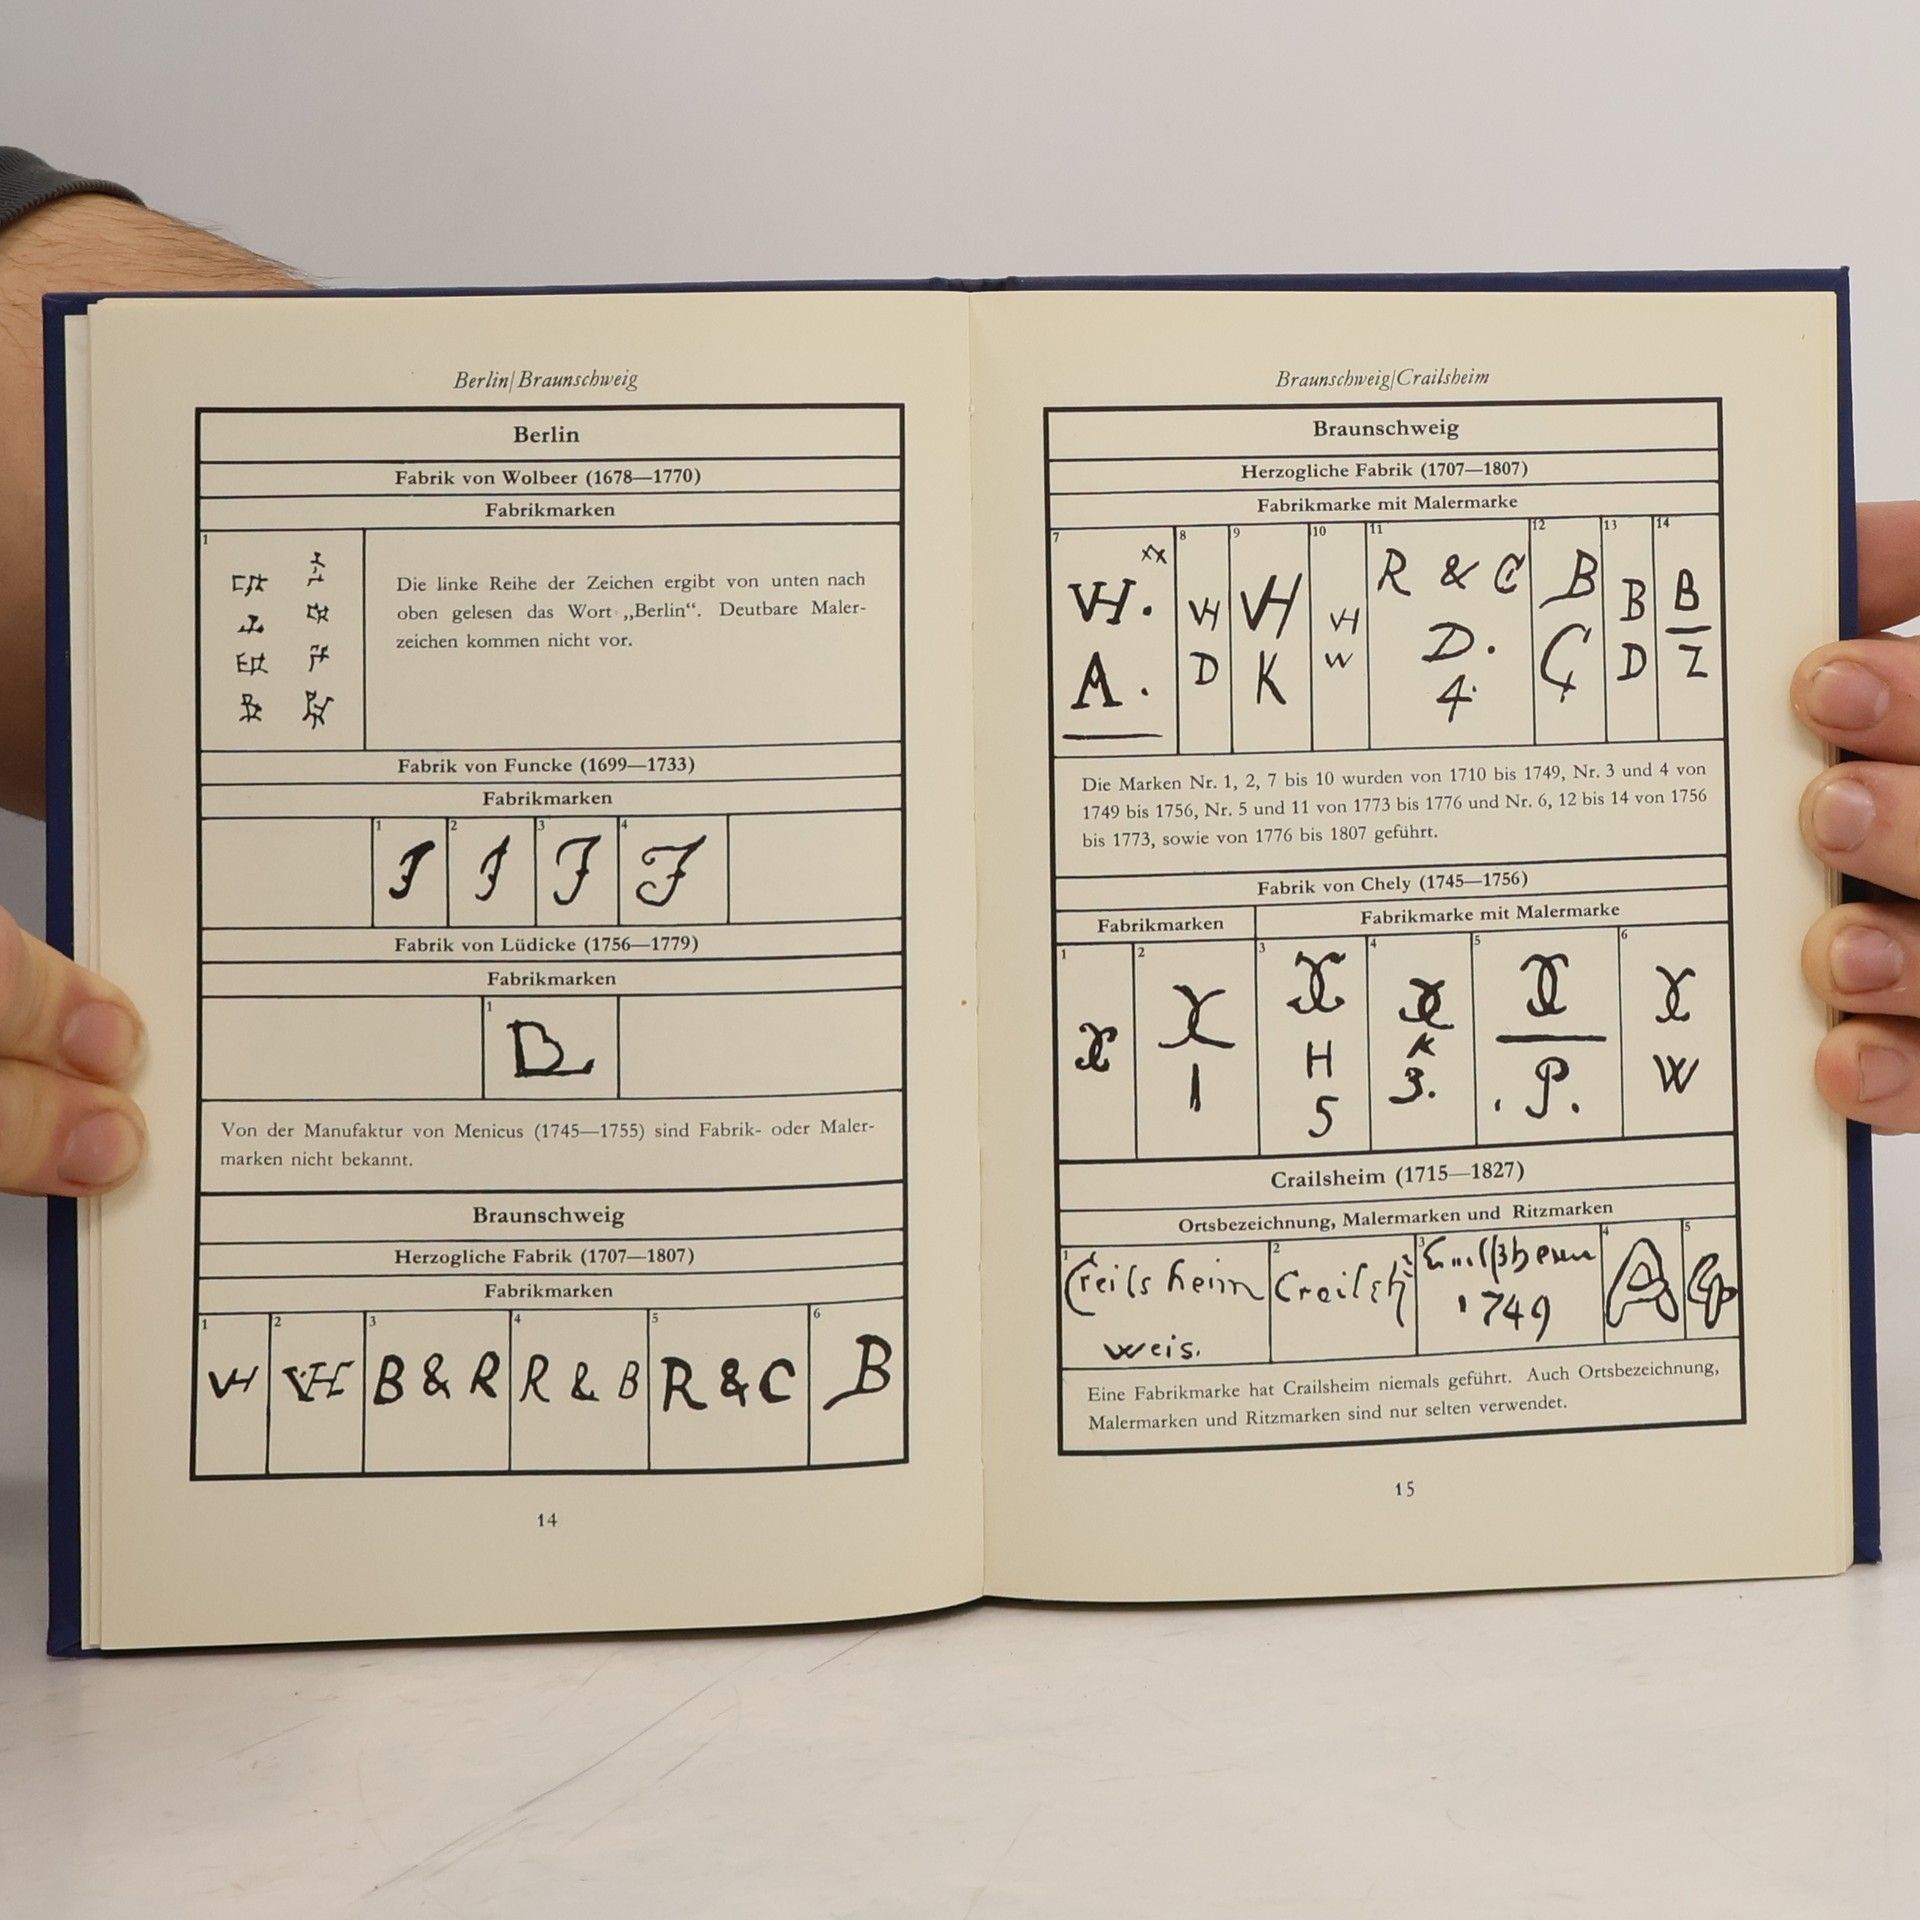 Berlin/Braunschweig
Berlin
Fabrik von Wolbeer (1678—1770)
Fabrikmarken
1
Die linke Reihe der Zeichen ergibt von unten nach
oben gelesen das Wort „Berlin“. Deutbare Maler-
zeichen kommen nicht vor.
Fabrik von Funcke (1699—1733)
Fabrikmarken
1 2 3 4
F F F F
Fabrik von Lüdicke (1756—1779)
Fabrikmarken
1
Von der Manufaktur von Menicus (1745—1755) sind Fabrik- oder Maler-
marken nicht bekannt.
Braunschweig
Herzogliche Fabrik (1707—1807)
Fabrikmarken
1 2 3 4 5 6
VH VH B & R R & B R & C B
14
Braunschweig/Crailsheim
Braunschweig
Herzogliche Fabrik (1707—1807)
Fabrikmarke mit Malermarke
7 8 9 10 11 12 13 14
VH. VH VH VH R & C B B B
A. D K W D. C D Z
4
Die Marken Nr. 1, 2, 7 bis 10 wurden von 1710 bis 1749, Nr. 3 und 4 von
1749 bis 1756, Nr. 5 und 11 von 1773 bis 1776 und Nr. 6, 12 bis 14 von 1756
bis 1773, sowie von 1776 bis 1807 geführt.
Fabrik von Chely (1745—1756)
Fabrikmarken Fabrikmarke mit Malermarke
1 2 3 4 5 6
1 H K P. W
5 3.
Crailsheim (1715—1827)
Ortsbezeichnung, Malermarken und Ritzmarken
1 2 3 4 5
Creilsheim Creilsh A
weis. 1749
Eine Fabrikmarke hat Crailsheim niemals geführt. Auch Ortsbezeichnung,
Malermarken und Ritzmarken sind nur selten verwendet.
15